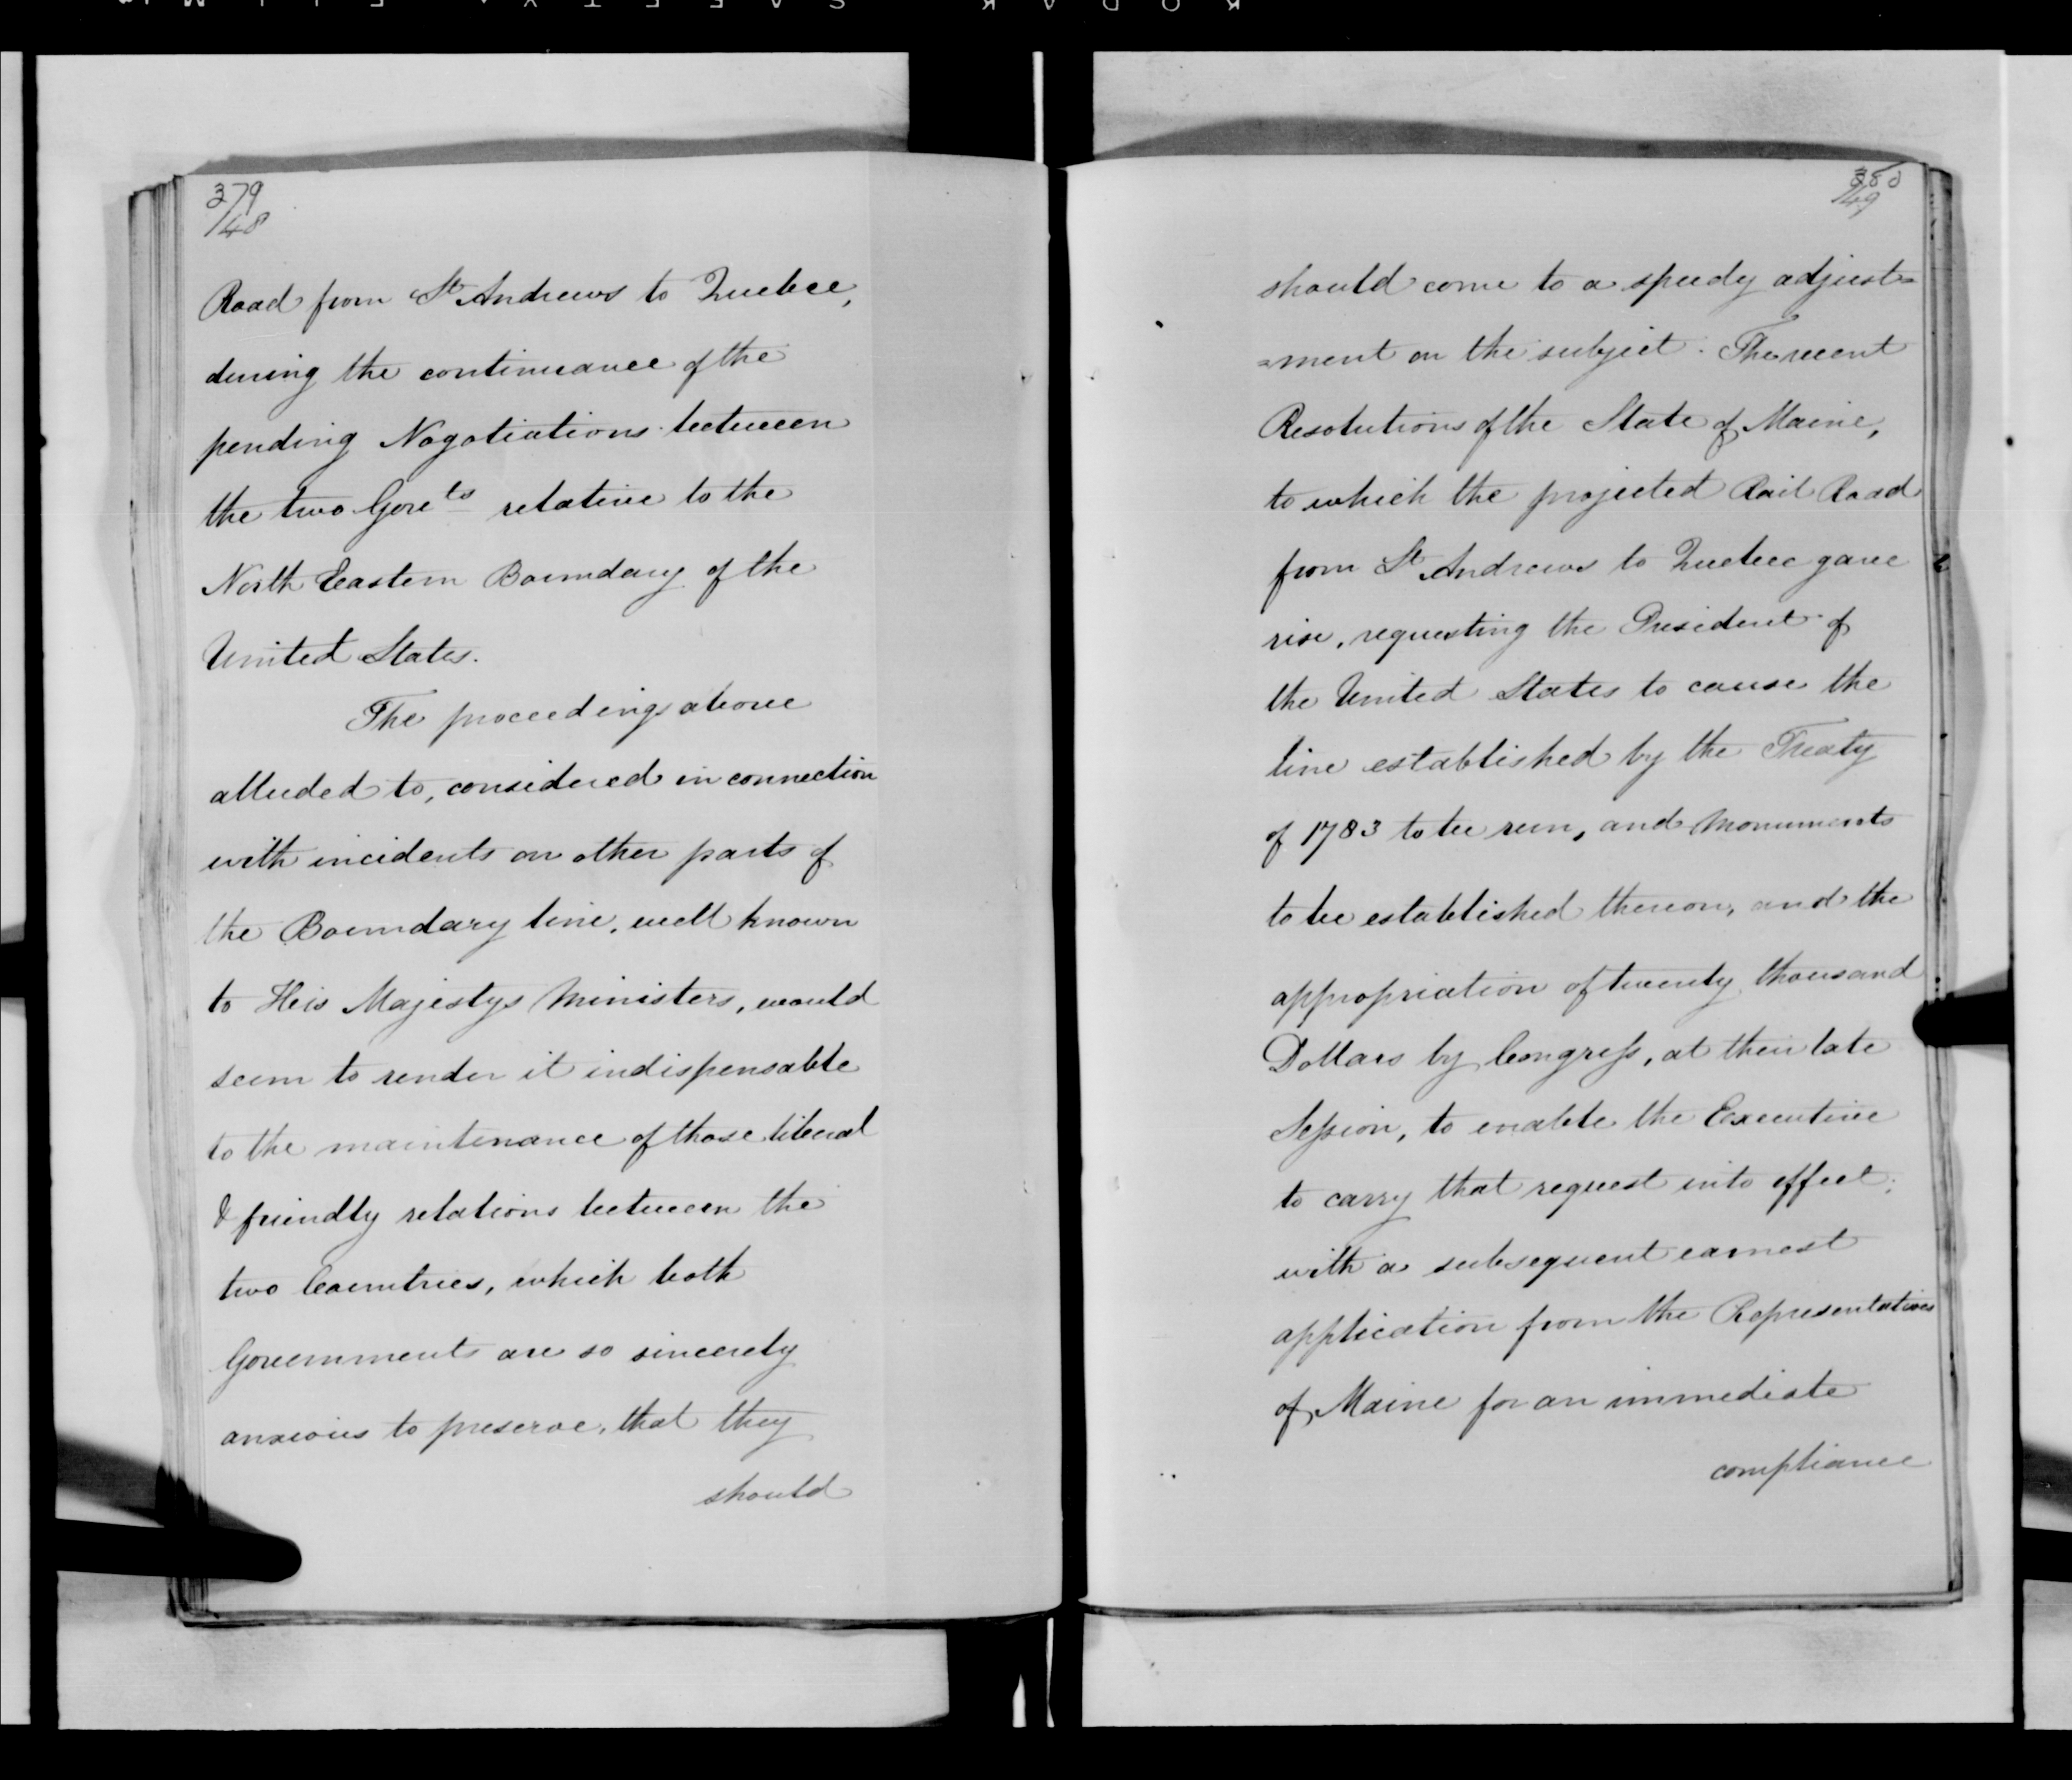 379
148
Road from St Andrews to Quebec,
during the continuance of the
pending Nogotiations between
the two Govets relative to the
North Eastern Boundary of the
United States.
The proceedings above
alluded to, considered in connection
with incidents on other parts of
the Boundary line, well known
to His Majestys Ministers, would
seem to render it indispensable
to the maintenance of those liberal
& friendly relations between the
two Countries, which both
Governments are so sincerely
anxious to preserve, that they
should
380
149
should come to a speedy adjust=
=ment on the subject. The recent
Resolutions of the State of Maine,
to which the projected Rail Road
from St Andrews to Quebec gave
rise, requesting the President of
the United States to cause the
line established by the Treaty
of 1783 to be run, and Monuments
to be established thereon, and the
appropriation of twenty thousand
Dollars by Congress, at their late
Session, to enable the Executive
to carry that request into effect;
with a subsequent earnest
application from the Representatives
of Maine for an immediate
compliance